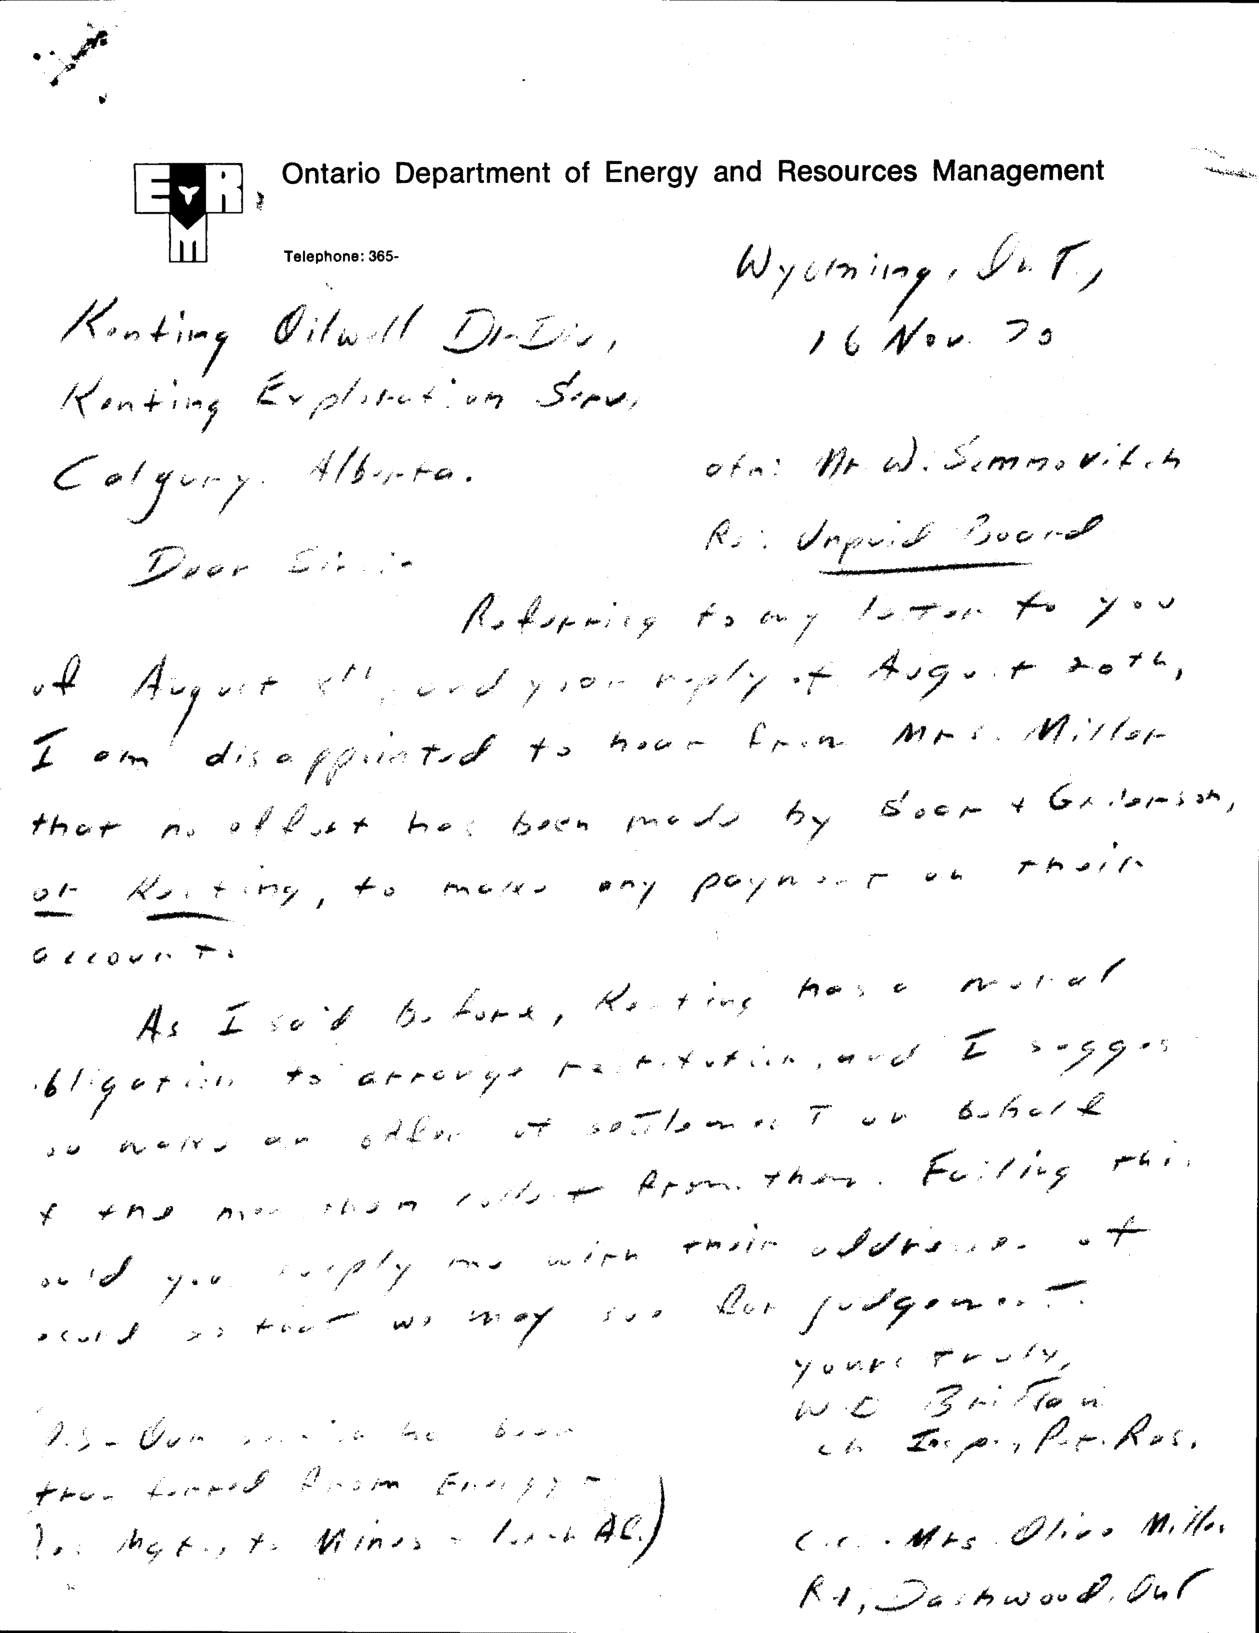 EMR
Ontario Department of Energy and Resources Management
Telephone: 365-
Wyoming, Ont.,
16 Nov. 70
Kenting Oilwell Dr. Div,
Kenting Exploration Serv,
Calgary. Alberta.
atn: Mr W. Semmovitch
Re: Unpaid Board
Dear Sir:-
Referring to my letter to you
of August 8th, and your reply of August 20th,
I am disappointed to hear from Mrs. Miller
that no effort has been made by Soer +
or Kenting, to make any payment on their
account.
As I said before, Kenting has a moral
obligation to arrange restitution, and I sugges
ou make an offer of settlement on behalf
f the men then collect from them. Failing this
ould you supply me with their addresses of
ecord so that we may sue for judgement.
Yours truly,
W D Britton
ch Insp., Pet. Res.
P.S- Our has been
transferred from Energy -
Res Mgt., to Mines - AE.)
c.c. - Mrs Olive Miller
R1, Dashwood, Ont